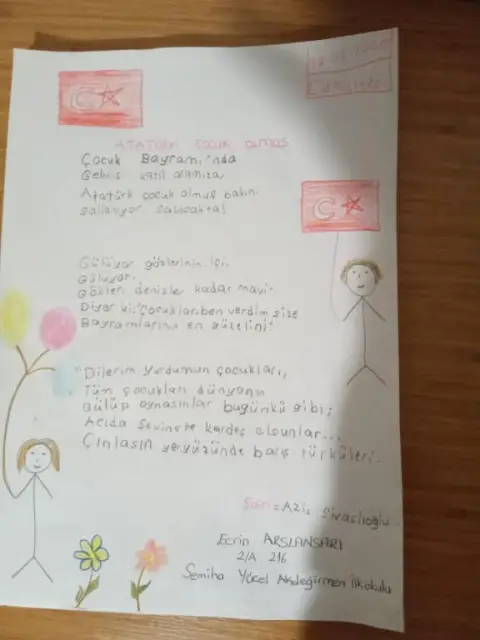 Cumartesi
ATATÜRK ÇOCUK OLMUŞ
Çocuk Bayramı'nda
Gelmiş katıl aramıza
Atatürk çocuk olmuş bakın
Sallanıyor salıncakta!
Gülüyor gözlerinin içi
Gülüyor.
Gökler denizler kadar mavi.
Diyor ki: Çocuklar ben verdim size
Bayramların en güzelini"
"Dilerim yurdumun çocukları,
Tüm çocukları dünyanın
Gülüp oynasınlar bugünkü gibi;
Acıda sevinçte kardeş olsunlar...
Çınlasın yeryüzünde barış türküleri.
Şair = Aziz Sivaslıoğlu
Ecrin ARSLANSARI
2/A 216
Semiha Yücel Akdeğirmen İlkokulu